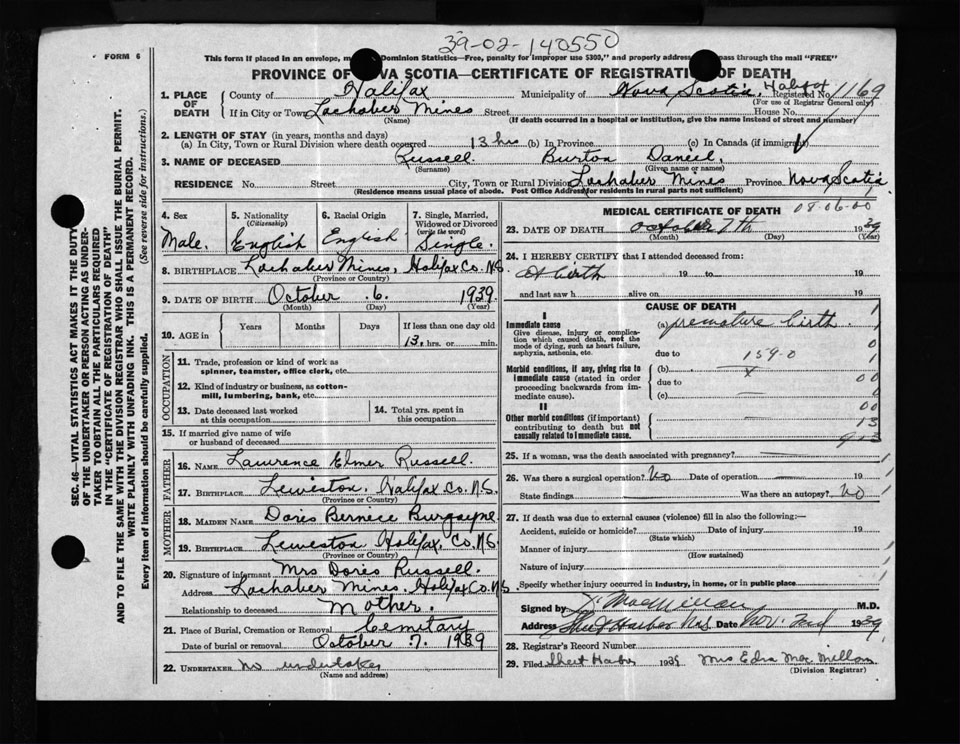 39-02-140550
FORM 6
This form if placed in an envelope, Dominion Statistics—Free, penalty for improper use $300," and properly address pass through the mail "FREE"
PROVINCE OF VA SCOTIA—CERTIFICATE OF REGISTRATION OF DEATH
1. PLACE OF DEATH
County of Halifax Municipality of Nova Scotia Registered No. 1169
(For use of Registrar General only)
If in City or Town Lochaber Mines Street House No.
(Name) (If death occurred in a hospital or institution, give the name instead of street and number)
2. LENGTH OF STAY (in years, months and days)
(a) In City, Town or Rural Division where death occurred 13 hrs (b) In Province (c) In Canada (if immigrant)
3. NAME OF DECEASED Russell Burton Daniel,
(Surname) (Given name or names)
RESIDENCE No. Street City, Town or Rural Division Lochaber Mines Province Nova Scotia
(Residence means usual place of abode. Post Office Address for residents in rural parts not sufficient)
4. Sex
Male.
5. Nationality
(Citizenship)
English
6. Racial Origin
English
7. Single, Married, Widowed or Divorced
(write the word)
Single.
8. BIRTHPLACE Lochaber Mines, Halifax Co. N.S.
(Province or Country)
9. DATE OF BIRTH October 6. 1939
(Month) (Day) (Year)
10. AGE in Years Months Days If less than one day old
13. hrs. or min.
OCCUPATION
11. Trade, profession or kind of work as
spinner, teamster, office clerk, etc.
12. Kind of industry or business, as cotton-
mill, lumbering, bank, etc.
13. Date deceased last worked
at this occupation
14. Total yrs. spent in
this occupation
15. If married give name of wife
or husband of deceased
FATHER
16. NAME Lawrence Elmer Russell
17. BIRTHPLACE Lewiston, Halifax Co. N.S.
(Province or Country)
MOTHER
18. MAIDEN NAME Doris Bernice
19. BIRTHPLACE Lewiston Halifax, Co. N.S.
(Province or Country)
20. Signature of informant Mrs Doris Russell.
Address Lochaber Mines, Halifax Co. N.S.
Relationship to deceased Mother.
21. Place of Burial, Cremation or Removal Cemitary
Date of burial or removal October 7. 1939
22. UNDERTAKER no undertaker
(Name and address)
MEDICAL CERTIFICATE OF DEATH 08-06-00
23. DATE OF DEATH October 7th 1939
(Month) (Day) (Year)
24. I HEREBY CERTIFY that I attended deceased from:
At birth 19 to 19
and last saw h alive on 19
CAUSE OF DEATH
I
Immediate cause
Give disease, injury or complica-
tion which caused death, not the
mode of dying, such as heart failure,
asphyxia, asthenia, etc.
(a) premature birth.
due to 159-0
Morbid conditions, if any, giving rise to
immediate cause (stated in order
proceeding backwards from im-
mediate cause).
(b)
due to
(c)
II
Other morbid conditions (if important)
contributing to death but not
causally related to immediate cause.
1
0
1
00
00
13
25. If a woman, was the death associated with pregnancy?
26. Was there a surgical operation? No Date of operation 19
State findings Was there an autopsy? No
27. If death was due to external causes (violence) fill in also the following:—
Accident, suicide or homicide? Date of injury 19
(State which)
Manner of injury
(How sustained)
Nature of injury
Specify whether injury occurred in industry, in home, or in public place
Signed by MacMillan M.D.
Address Sheet Harbor N.S. Date Nov. 2nd 1939
28. Registrar's Record Number
29. Filed Sheet Harbor 1939 Mrs Edra MacMillan
(Division Registrar)
SEC. 46—VITAL STATISTICS ACT MAKES IT THE DUTY
OF THE UNDERTAKER OR PERSON ACTING AS UNDER-
TAKER TO OBTAIN ALL THE PARTICULARS REQUIRED
IN THE "CERTIFICATE OF REGISTRATION OF DEATH"
AND TO FILE THE SAME WITH THE DIVISION REGISTRAR WHO SHALL ISSUE THE BURIAL PERMIT.
WRITE PLAINLY WITH UNFADING INK. THIS IS A PERMANENT RECORD.
Every item of information should be carefully supplied. (See reverse side for instructions.)